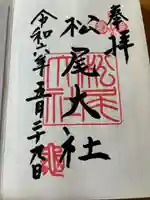 奉拝
松尾大社
令和六年五月二十九日